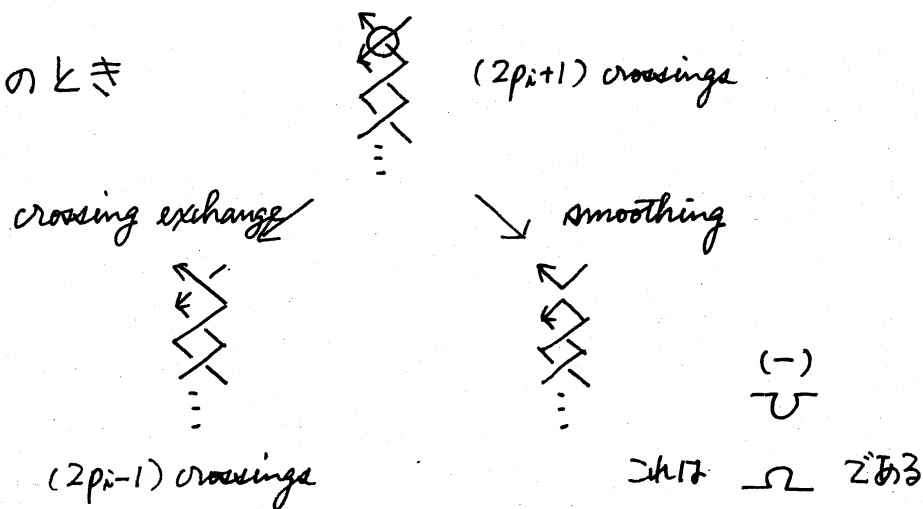 のとき
(2pi+1) crossings
crossing exchange
smoothing
(2pi-1) crossings
(-)
これは
である